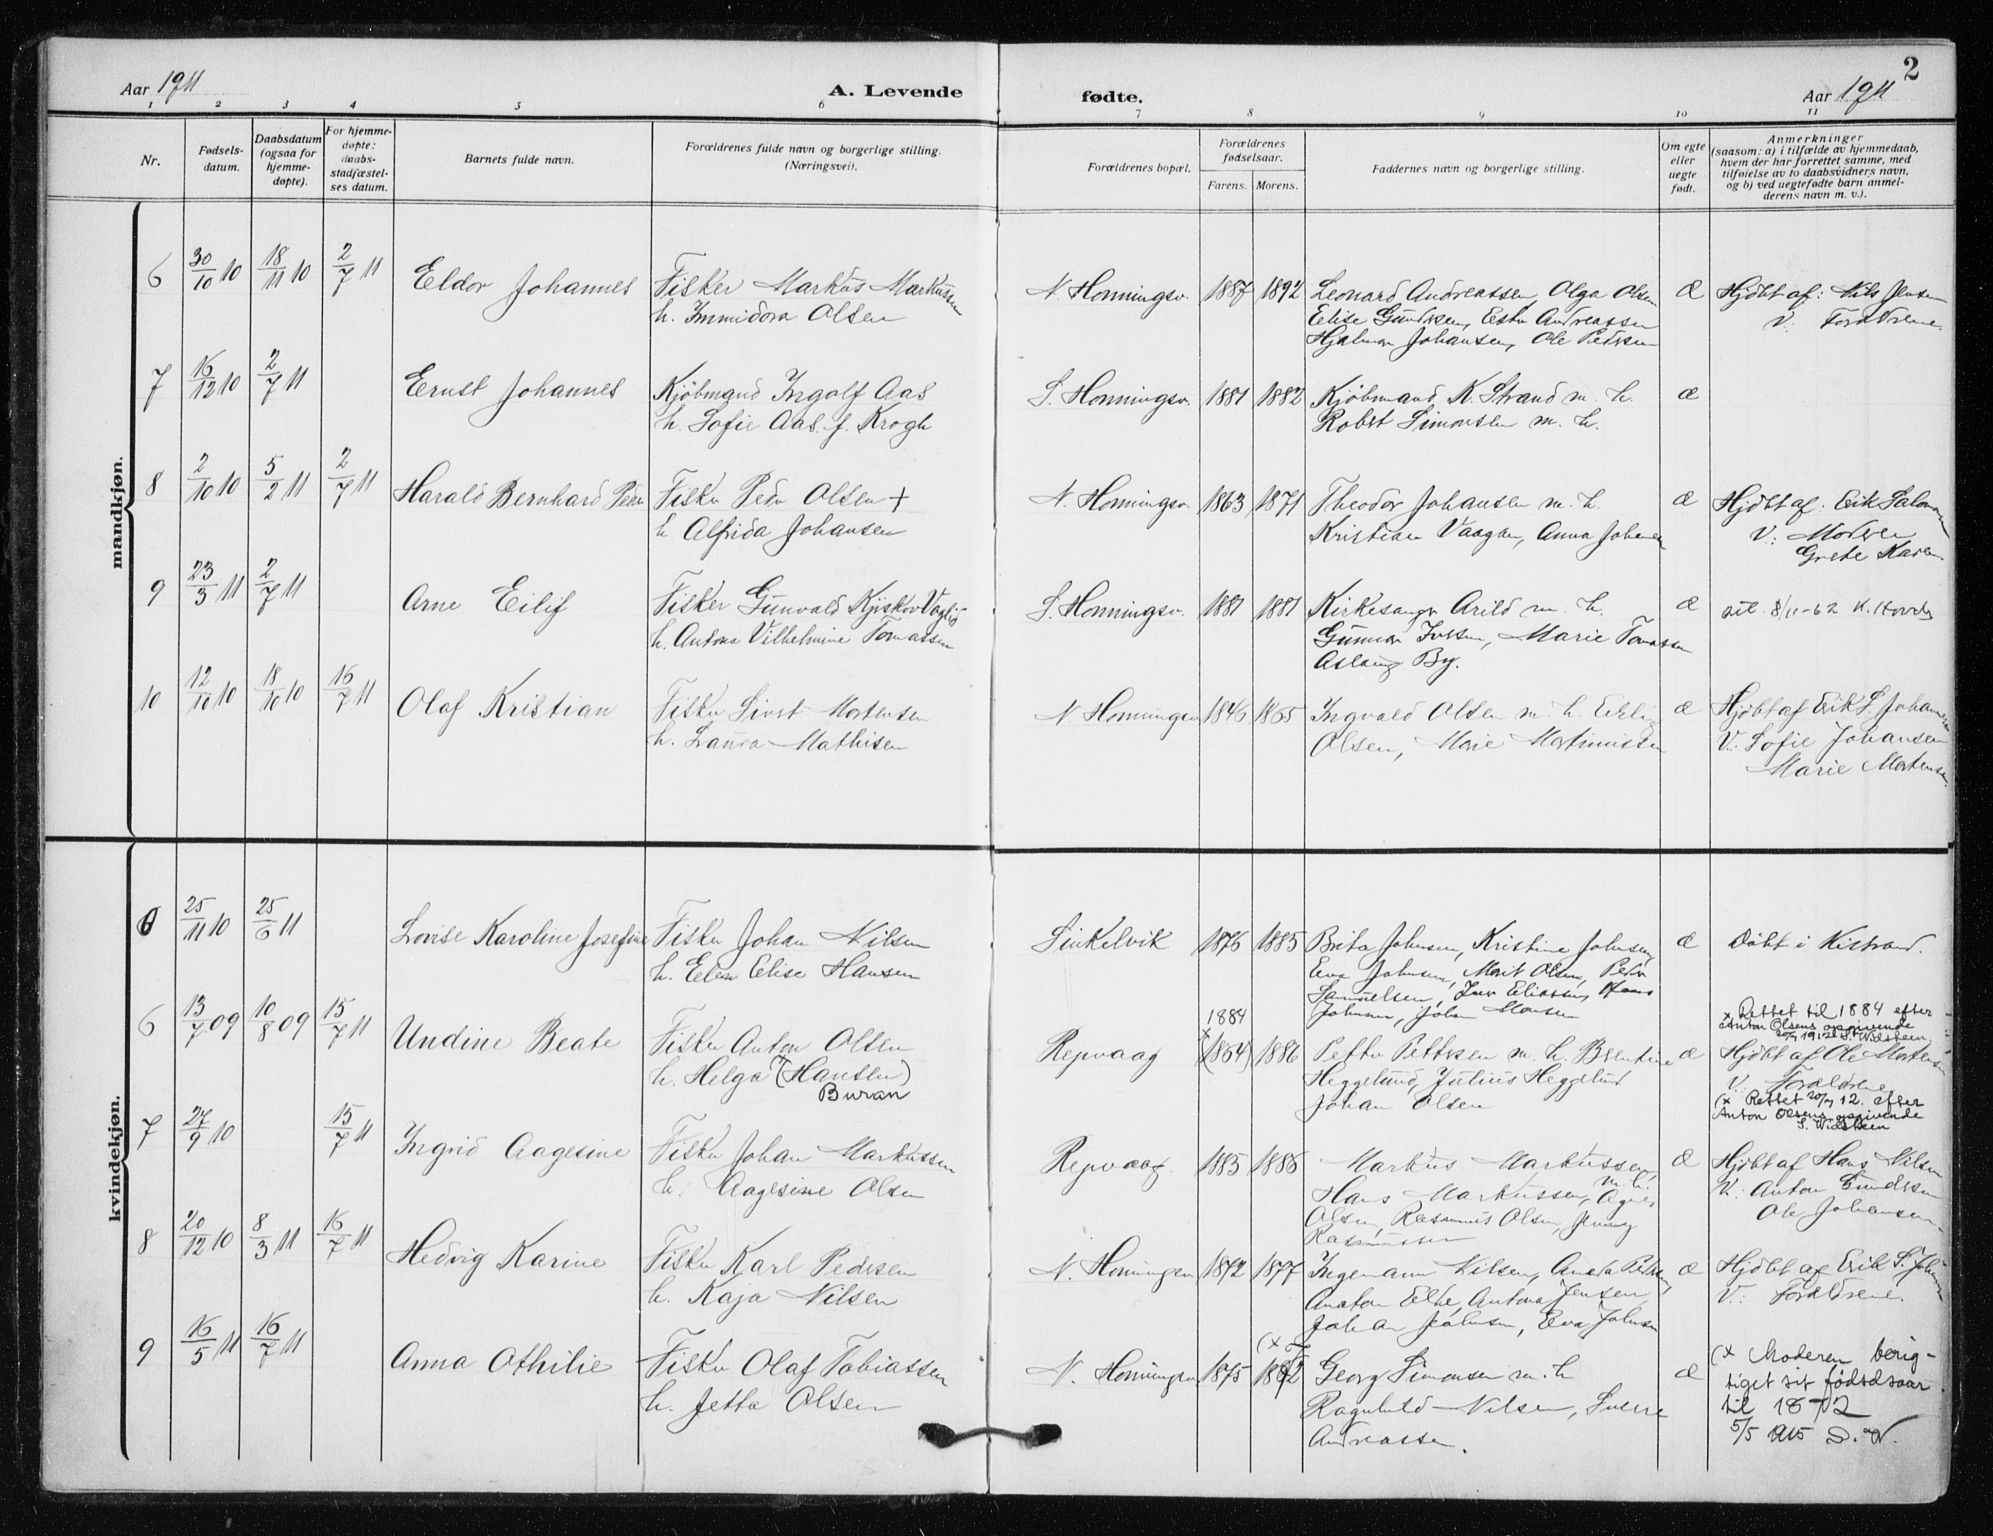 2
Aar 1911
A. Levende
fødte.
Aar 1911
1 2 3 4 5 6 7 8 9 10 11
Nr.
Fødsels-
datum.
Daabsdatum
(ogsaa for
hjemme-
døpte).
For hjemme-
døpte:
daabs-
stadfæstel-
ses datum.
Barnets fulde navn.
Forældrenes fulde navn og borgerlige stilling.
(Næringsvei).
Forældrenes bopæl.
Forældrenes
fødselsaar.
Farens. Morens.
Faddernes navn og borgerlige stilling.
Om egte
eller
uegte
født.
Anmerkninger
(saasom: a) i tilfælde av hjemmedaab,
hvem der har forrettet samme, med
tilføielse av to daabsvidners navn,
og b) ved uegtefødte barn anmel-
derens navn m. v.).
mandkjøn.
6 30/10 10 18/11 10 2/7 11 Eldor Johannes Fisker Markus Markussen N. Honningsv. 1887 1892 Leonard Andreassen, Olga Olsen Æ Hjdbt af: Nils Jensen
h. Immidora Olsen Elise Gundersen, Ester Andreassen V: Forældrene.
Hjalmar Johansen, Ole Pedersen
7 16/12 10 2/7 11 Ernst Johannes Kjöbmand Ingolf Aas S. Honningsv. 1881 1882 Kjöbmand K. Strand m. h. Æ
h. Sofie Aas f. Krogh Robert Simonsen m. h.
8 2/10 10 5/2 11 2/7 11 Harald Bernhard Peder Fisker Peder Olsen + N. Honningsv. 1863 1871 Theodor Johansen m. h. Æ Hjdbt af: Erik
h. Alfrida Johansen Kristian Vaagan, Anna V: Moderen
Grete Karen
9 23/3 11 2/7 11 Arne Eilif Fisker Gunvald S. Honningsv. 1881 1881 Kirkesanger Arild m. h. Æ 8/11-62 K.
h. Antona Vilhelmine Tomassen Gunnar Iversen, Marie Tomassen
Aslaug By.
10 12/10 10 18/10 10 16/7 11 Olaf Kristian Fisker Sivert Mortensen N. Honningsv 1846 1865 Ingvald Olsen m. h. Erling Æ Hjdbt af Erik S. Johansen
h. Laura Mathisen Olsen, Marie V: Sofie Johansen
Marie Mortensen.
kvindekjøn.
25/11 10 25/6 11 Lovise Karoline Josefine Fisker Johan Nilsen 1876 1885 Brita Johnsen, Kristine Johnsen, Æ Döbt i Kistrand.
h. Elen Elise Hansen Eva Johnsen, Marit Olsen, Peder
Samuelsen, Iver Eliassen, Hans
Johnsen, Johan Monsen
6 13/7 09 10/8 09 15/7 11 Undine Beate Fisker Anton Olsen Repvaag 1884 x (1864) 1886 Petter Pettersen m. h. Berntine Æ
x Rettet til 1884 efter
Anton Olsens opgivende
20/7 1912 S. Widsteen
h. Helga (Hansen) Heggelund, Julius Heggelund Hjdbt af Ole Mortensen
Buran Johan Olsen V: Forældrene
(x Rettet 20/7 12. efter
Anton Olsens opgivende
S. Widsteen
7 27/9 10 15/7 11 Ingrid Aagesine Fisker Johan Markussen Repvaag. 1885 1886 Markus Markussen, m. h. Æ Hjdbt af Hans Nilsen
h. Aagesine Olsen Hans Markussen, V: Anton Gundersen
Olsen, Rasmus Olsen, Jenny Ole Johansen.
Rasmussen
8 20/12 10 8/3 11 16/7 11 Hedvig Karine Fisker Karl Pedersen N. Honningsv 1872 1877 Ingemann Nilsen, Pedersen, Æ Hjdbt af Erik S. Johansen
h. Kaja Nilsen Anaton Antona Jensen V: Forældrene.
Johan Johnsen, Eva Johnsen
9 16/5 11 16/7 11 Anna Othilie Fisker Olaf Tobiassen N. Honningsv 1875 (x 1872 Georg Simonsen m. h Æ (x Moderen berig-
h. Jetta Olsen Ragnhild Nilsen, Sverre tiget sit fødselsaar
Andreassen. til 1872
5/5 1915 S. W.